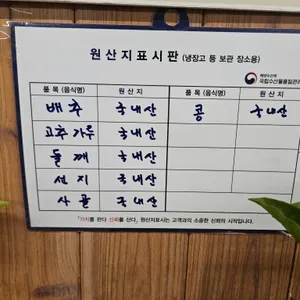 원산지표시판 (냉장고 등 보관 장소용)
해양수산부
국립수산물품질관리
품목 (음식명) 원산지 품목 (음식명) 원산지
배추 국내산 콩 국내산
고추가루 국내산
들깨 국내산
선지 국내산
사골 국내산
"가치를 판다 신뢰를 산다, 원산지표시는 고객과의 소중한 신뢰의 시작입니다.